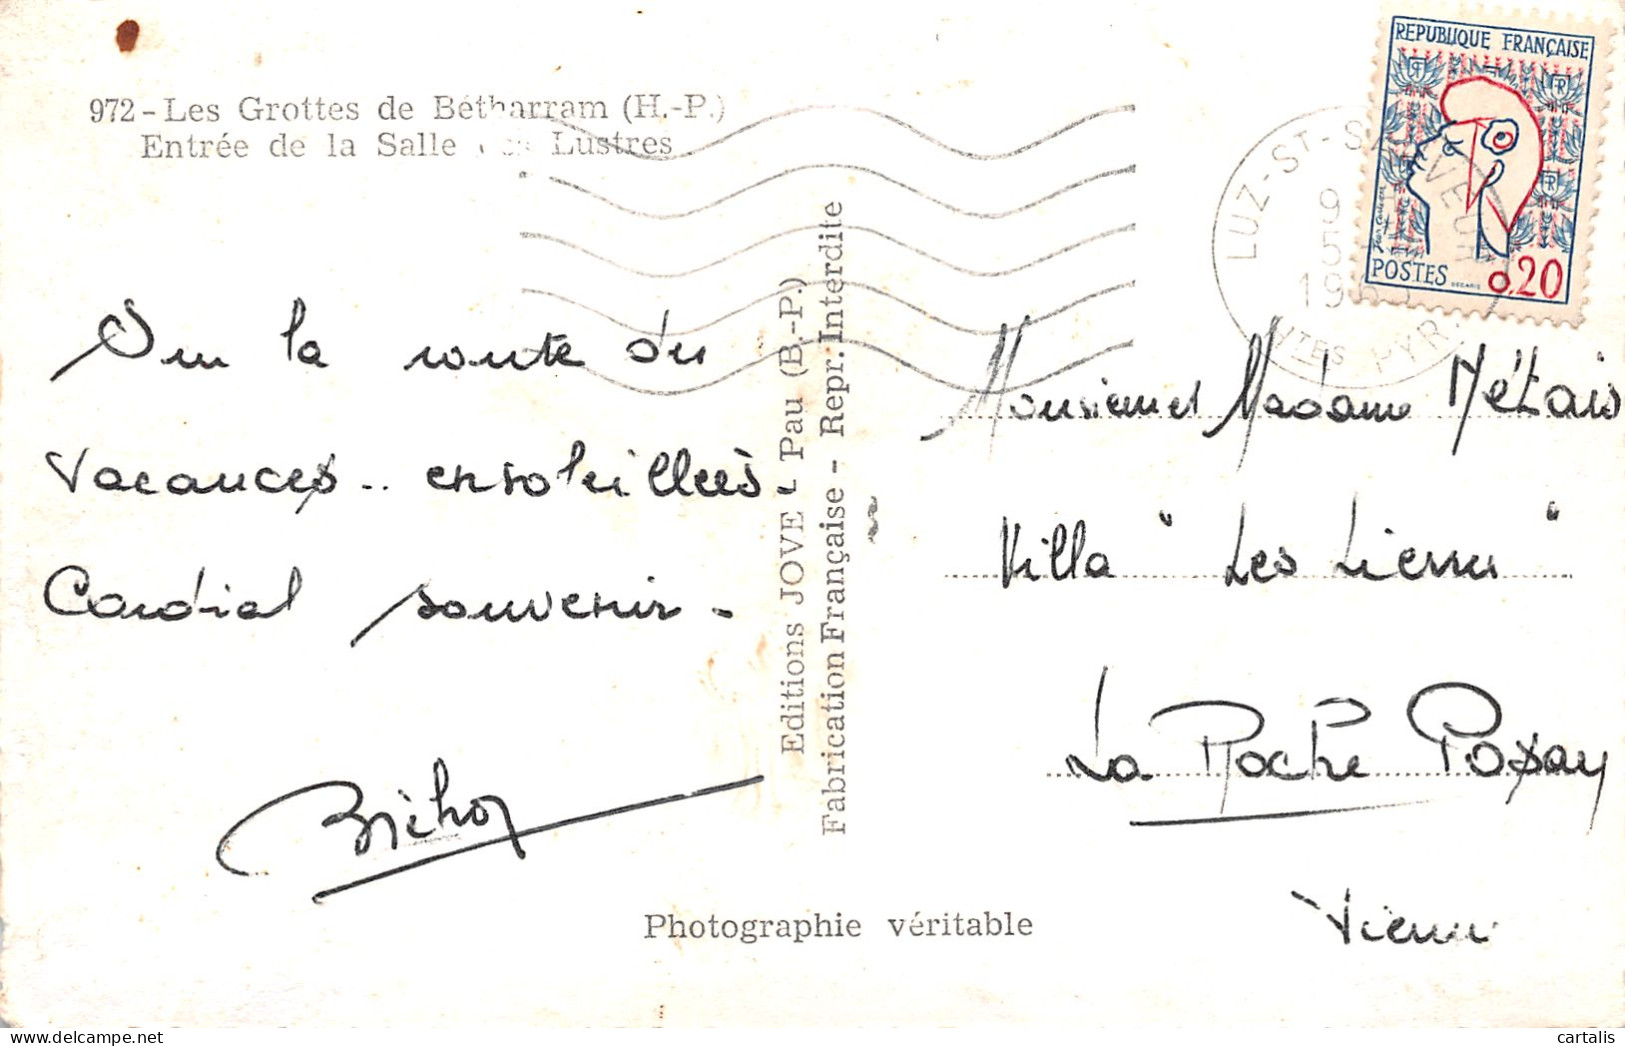 972 - Les Grottes de Bétharram (H.-P.)
Entrée de la Salle des Lustres
Sur la route du
vacances.. ensoleillées -
Cordial souvenir -
Editions JOVE - Pau (B.-P.)
Fabrication Française - Repr. Interdite
Photographie véritable
REPUBLIQUE FRANÇAISE
POSTES 0.20
DECARIS
LUZ-ST-SAUVEUR
9
5
HTES PYR.
Monsieur et Madame Métais
Villa " Les Lierres "
La Roche Posay
Vienne
cartalis